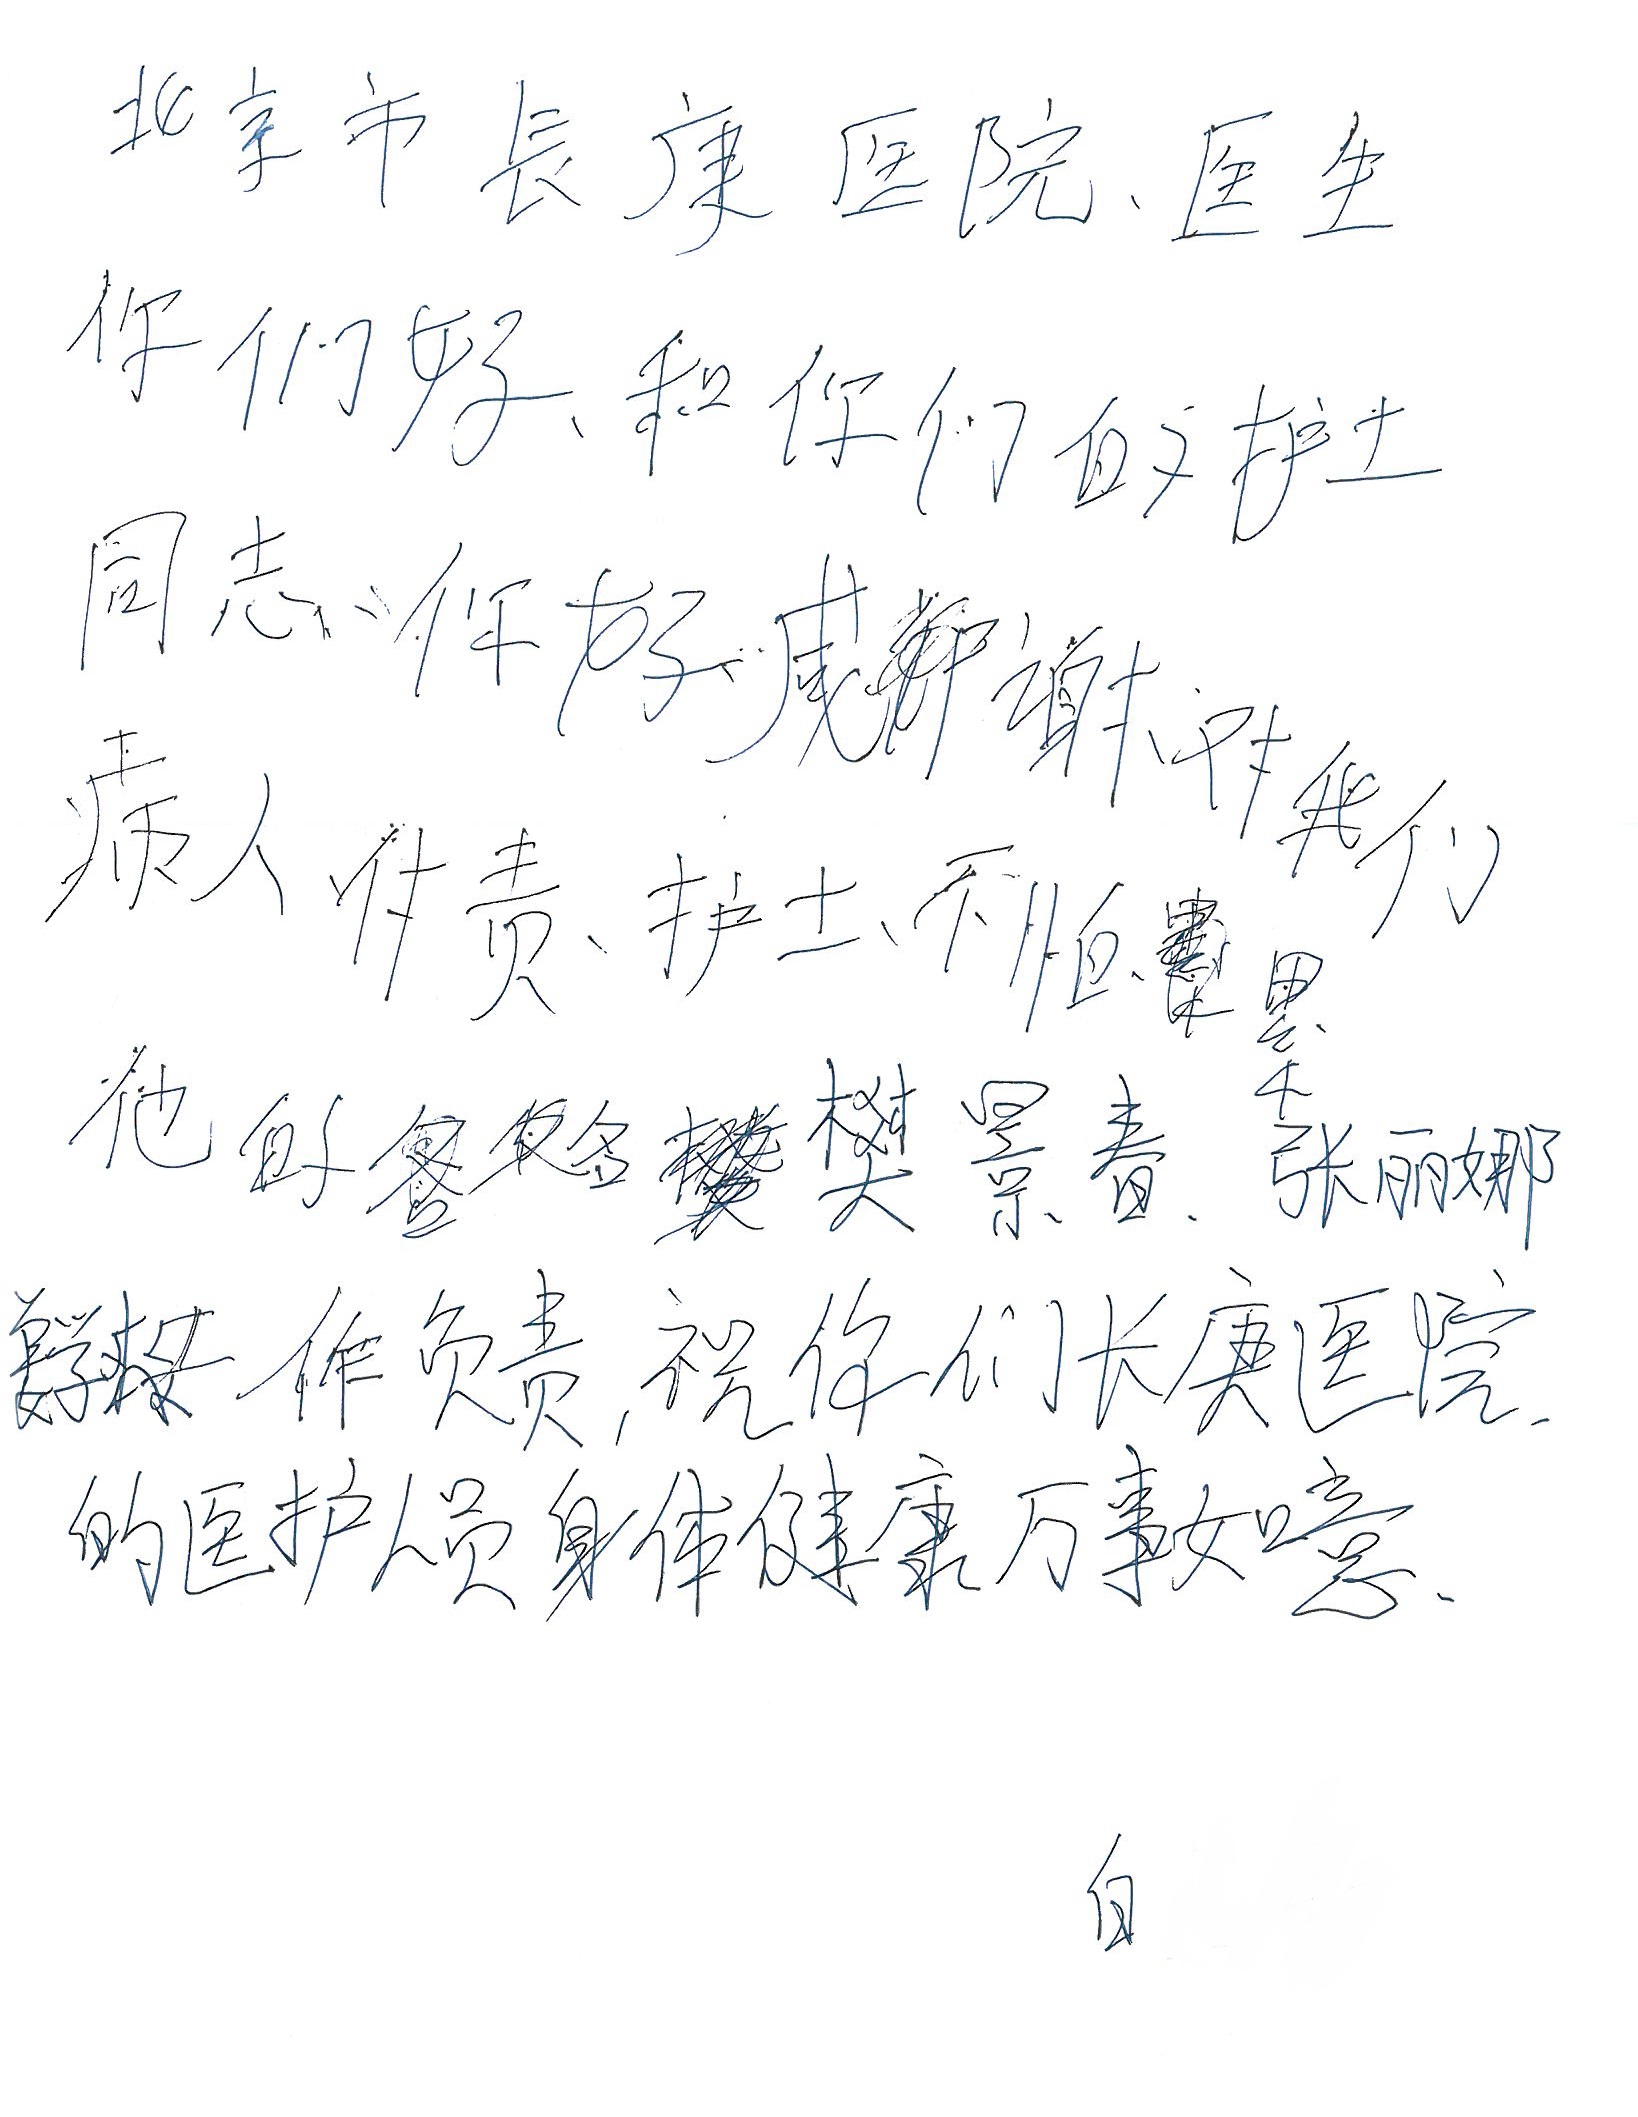 北京市長康医院、医生
你们好、和你们的护士
同志、你好、感谢、对我们
病人付责、护士、不怕、累
他的樊景春、张丽娜
作负责,祝你们长庚医院.
的医护人员身体健康万事如意.
白